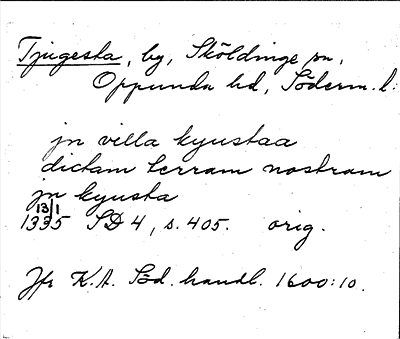 Tjugesta, by, Sköldinge sn,
Oppunda hd, Söderm. l:
jn villa kyustaa
dictam terram nostram
jn kyusta
13/1
1335 SD 4, s. 405. orig.
Jfr K.A. Söd. handl. 1600:10.